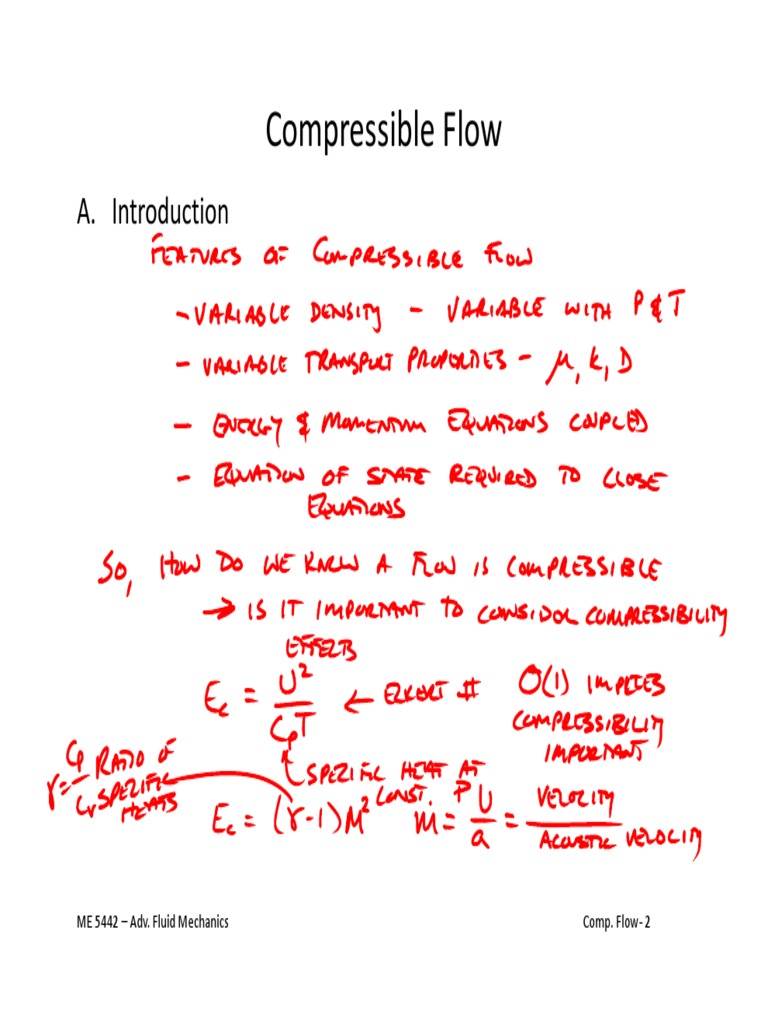 Compressible Flow
A. Introduction
FEATURES OF COMPRESSIBLE FLOW
- VARIABLE DENSITY - VARIABLE WITH P & T
- VARIABLE TRANSPORT PROPERTIES - μ, k, D
- ENERGY & MOMENTUM EQUATIONS COUPLED
- EQUATION OF STATE REQUIRED TO CLOSE
EQUATIONS
SO, HOW DO WE KNOW A FLOW IS COMPRESSIBLE
→ IS IT IMPORTANT TO CONSIDER COMPRESSIBILITY
EFFECTS
E_c = U²/(C_p T) ← ECKERT # O(1) IMPLIES
COMPRESSIBILITY
IMPORTANT
SPECIFIC HEAT AT
CONST. P
γ = C_p/C_v RATIO OF
SPECIFIC
HEATS
E_c = (γ-1)M² M = U/a = VELOCITY/ACOUSTIC VELOCITY
ME 5442 – Adv. Fluid Mechanics
Comp. Flow- 2